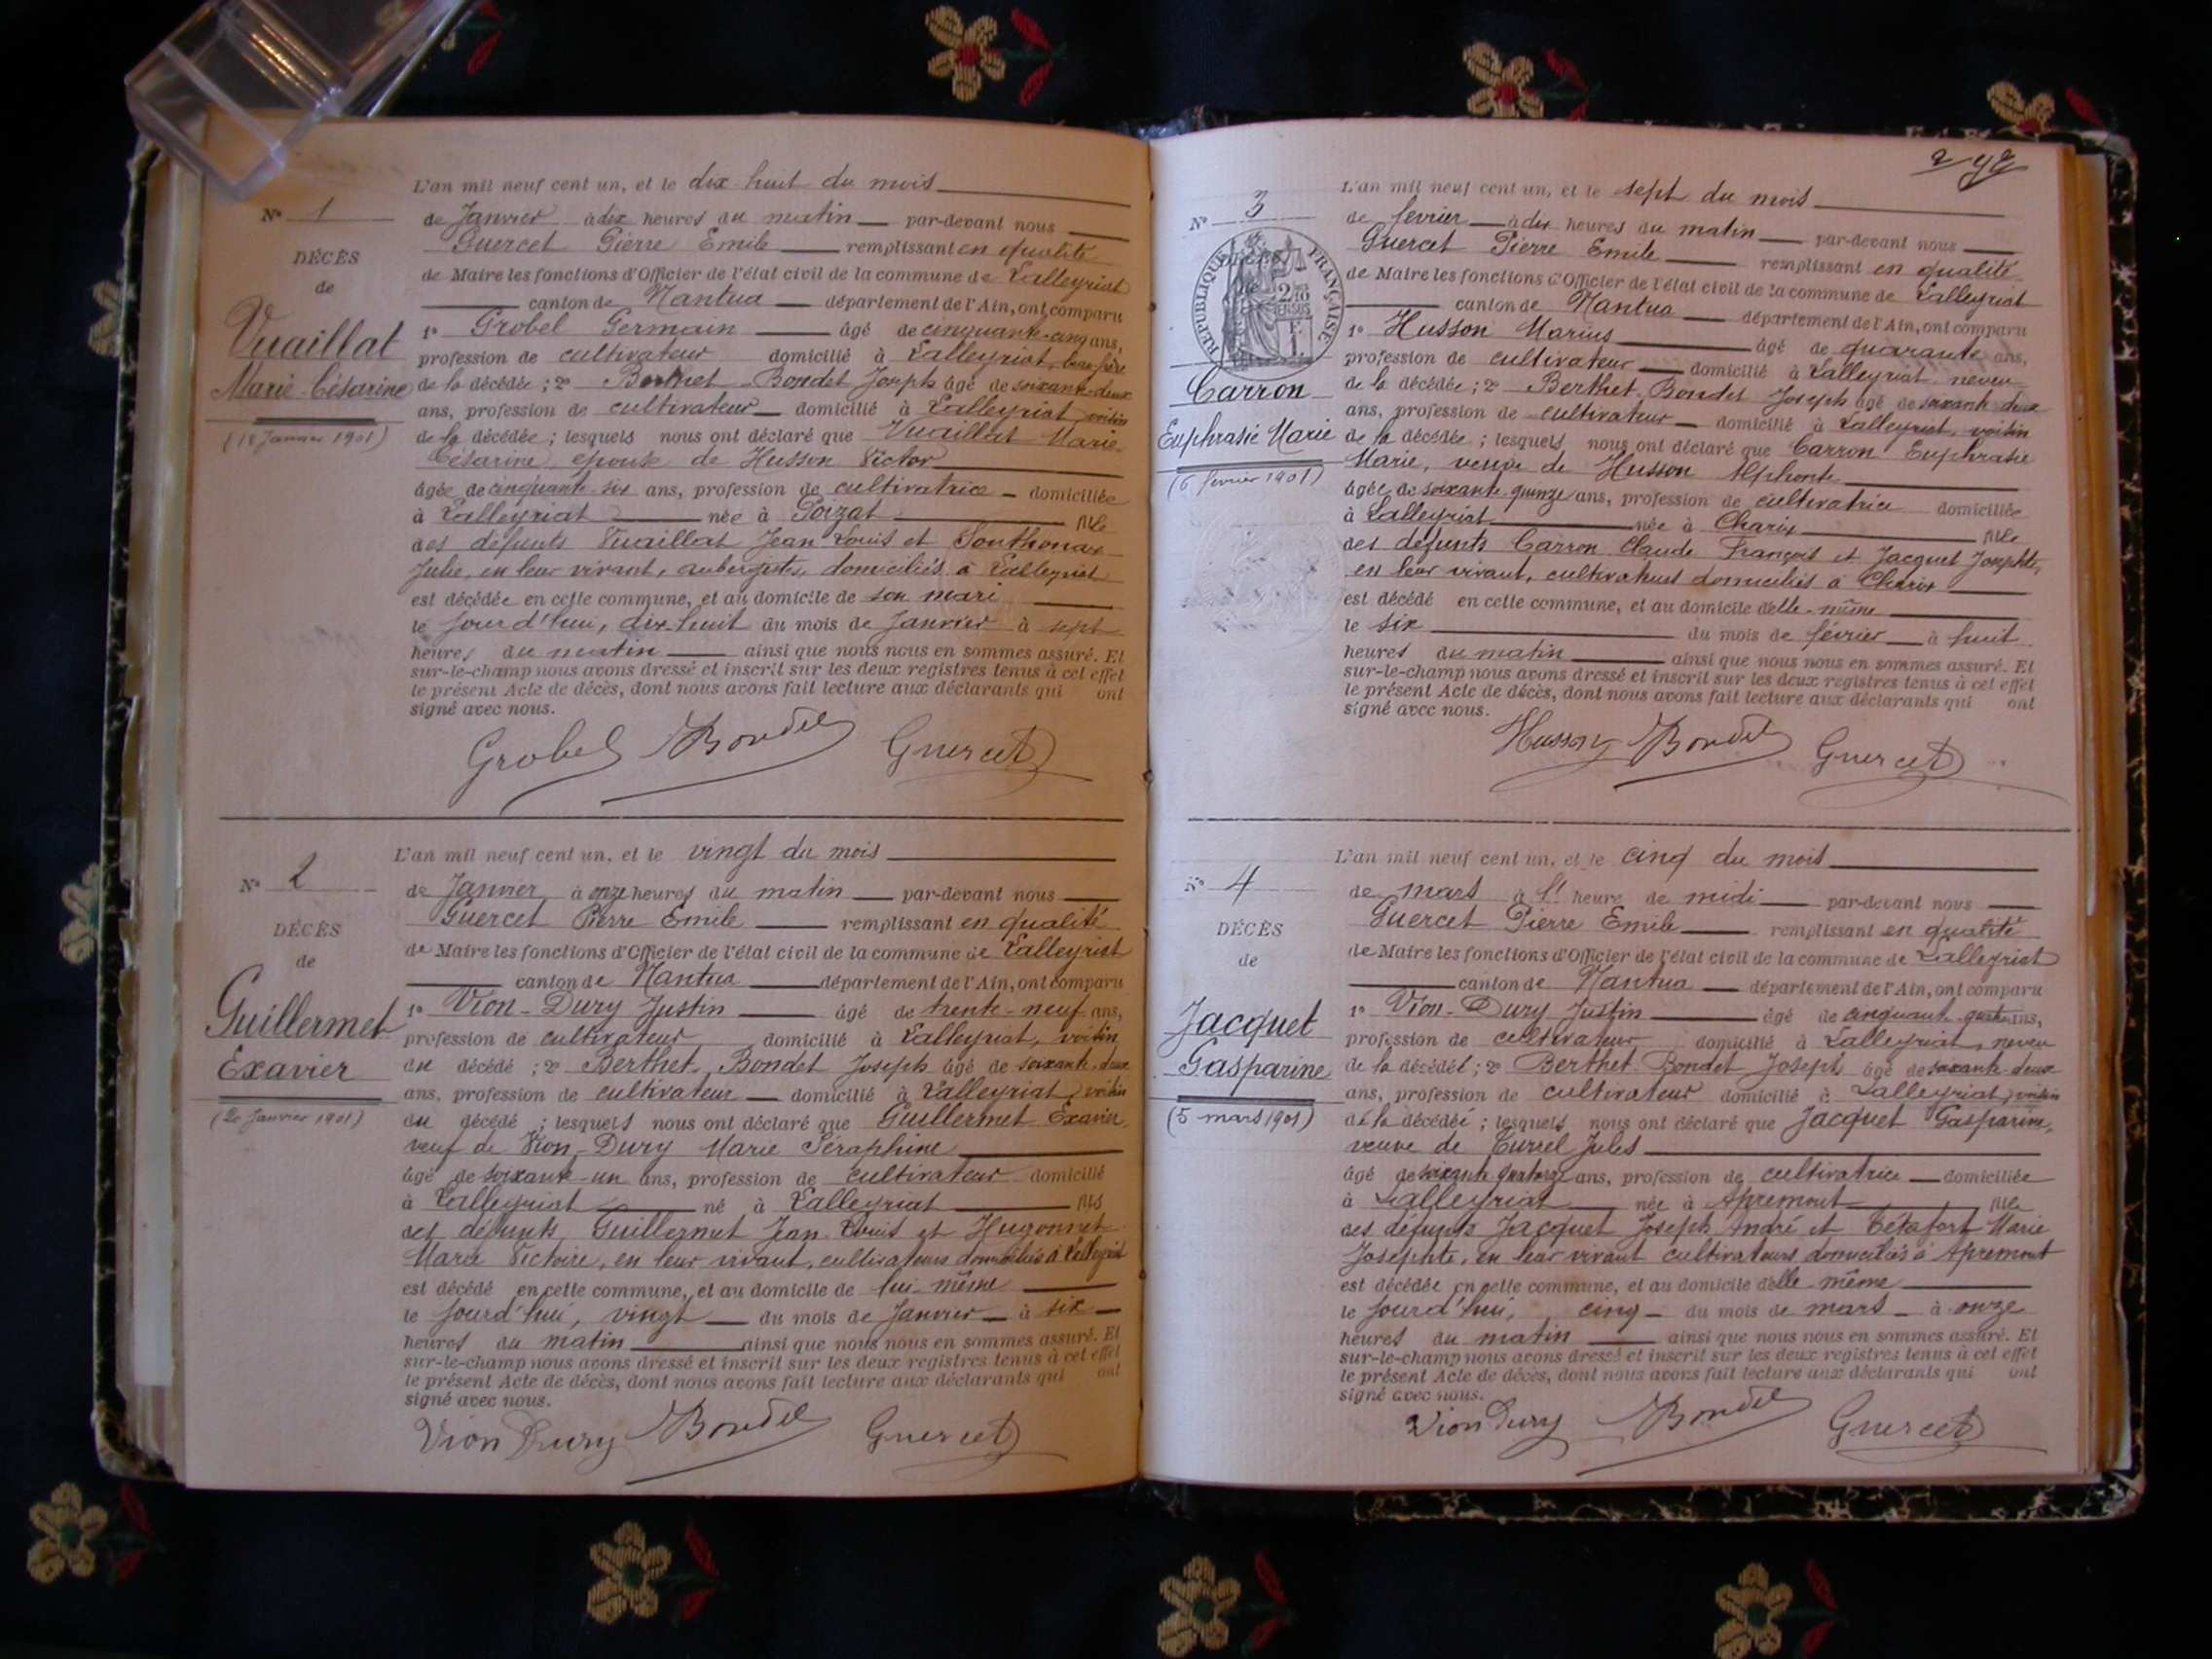 L'an mil neuf cent un, et le dix-huit du mois
N° 1
de Janvier à dix heures du matin par-devant nous
Guercet Pierre Emile remplissant en qualité
DÉCÈS
de Maire les fonctions d'Officier de l'état civil de la commune de Lalleyriat
de
canton de Nantua département de l'Ain, ont comparu
Vuaillat
1° Grobel Germain âgé de cinquante-cinq ans,
profession de cultivateur domicilié à Lalleyriat, beau-frère
Marie-Césarine
de la décédée ; 2° Berthet-Bondet Joseph âgé de soixante-deux
ans, profession de cultivateur domicilié à Lalleyriat, voisin
(18 Janvier 1901)
de la décédée ; lesquels nous ont déclaré que Vuaillat Marie
Césarine, épouse de Husson Victor
âgée de cinquante-six ans, profession de cultivatrice domiciliée
à Lalleyriat née à Poizat fille
des défunts Vuaillat Jean Louis et Southonax
Julie, en leur vivant, aubergistes, domiciliés à Lalleyriat
est décédée en cette commune, et au domicile de son mari
le jourd'hui, dix-huit du mois de Janvier à sept
heures du matin ainsi que nous nous en sommes assuré. Et
sur-le-champ nous avons dressé et inscrit sur les deux registres tenus à cet effet
le présent Acte de décès, dont nous avons fait lecture aux déclarants qui ont
signé avec nous.
Grobel Bondet Guercet
L'an mil neuf cent un, et le vingt du mois
N° 2
de Janvier à onze heures du matin par-devant nous
Guercet Pierre Emile remplissant en qualité
DÉCÈS
de Maire les fonctions d'Officier de l'état civil de la commune de Lalleyriat
de
canton de Nantua département de l'Ain, ont comparu
Guillermet
1° Vion-Dury Justin âgé de trente-neuf ans,
profession de cultivateur domicilié à Lalleyriat, voisin
Exavier
du décédé ; 2° Berthet-Bondet Joseph âgé de soixante-deux
ans, profession de cultivateur domicilié à Lalleyriat, voisin
(20 Janvier 1901)
du décédé ; lesquels nous ont déclaré que Guillermet Exavier,
veuf de Vion-Dury Marie Séraphine
âgé de soixante-un ans, profession de cultivateur domicilié
à Lalleyriat né à Lalleyriat fils
des défunts Guillermet Jean Louis et Hugonnet
Marie Victoire, en leur vivant, cultivateurs domiciliés à Lalleyriat
est décédé en cette commune, et au domicile de lui-même
le jourd'hui, vingt du mois de Janvier à six
heures du matin ainsi que nous nous en sommes assuré. Et
sur-le-champ nous avons dressé et inscrit sur les deux registres tenus à cet effet
le présent Acte de décès, dont nous avons fait lecture aux déclarants qui ont
signé avec nous.
Vion Dury Bondet Guercet
L'an mil neuf cent un, et le sept du mois
N° 3
de février à dix heures du matin par-devant nous
Guercet Pierre Emile remplissant en qualité
RÉPUBLIQUE FRANÇAISE
de Maire les fonctions d'Officier de l'état civil de la commune de Lalleyriat
canton de Nantua département de l'Ain, ont comparu
1° Husson Marius âgé de quarante ans,
profession de cultivateur domicilié à Lalleyriat, neveu
Carron
de la décédée ; 2° Berthet-Bondet Joseph âgé de soixante-deux
ans, profession de cultivateur domicilié à Lalleyriat, voisin
Euphrasie Marie
de la décédée ; lesquels nous ont déclaré que Carron Euphrasie
Marie, veuve de Husson Alphonse
(6 février 1901)
âgée de soixante-quinze ans, profession de cultivatrice domiciliée
à Lalleyriat née à Charix fille
des défunts Carron Claude François et Jacquet Josephte,
en leur vivant, cultivateurs domiciliés à Charix
est décédé en cette commune, et au domicile d'elle-même
le six du mois de février à huit
heures du matin ainsi que nous nous en sommes assuré. Et
sur-le-champ nous avons dressé et inscrit sur les deux registres tenus à cet effet
le présent Acte de décès, dont nous avons fait lecture aux déclarants qui ont
signé avec nous.
Husson Bondet Guercet
L'an mil neuf cent un, et le cinq du mois
N° 4
de mars à heure de midi par-devant nous
Guercet Pierre Emile remplissant en qualité
DÉCÈS
de Maire les fonctions d'Officier de l'état civil de la commune de Lalleyriat
de
canton de Nantua département de l'Ain, ont comparu
Jacquet
1° Vion-Dury Justin âgé de cinquante-quatre ans,
profession de cultivateur domicilié à Lalleyriat, neveu
Gasparine
de la décédée ; 2° Berthet-Bondet Joseph âgé de soixante-deux
ans, profession de cultivateur domicilié à Lalleyriat, voisin
(5 mars 1901)
de la décédée ; lesquels nous ont déclaré que Jacquet Gasparine,
veuve de Jules
âgé de soixante-quatorze ans, profession de cultivatrice domiciliée
à Lalleyriat née à Apremont fille
des défunts Jacquet Joseph André et Marie
Josephte, en leur vivant cultivateurs domiciliés à Apremont
est décédée en cette commune, et au domicile d'elle-même
le jourd'hui, cinq du mois de mars à onze
heures du matin ainsi que nous nous en sommes assuré. Et
sur-le-champ nous avons dressé et inscrit sur les deux registres tenus à cet effet
le présent Acte de décès, dont nous avons fait lecture aux déclarants qui ont
signé avec nous.
Vion Dury Bondet Guercet